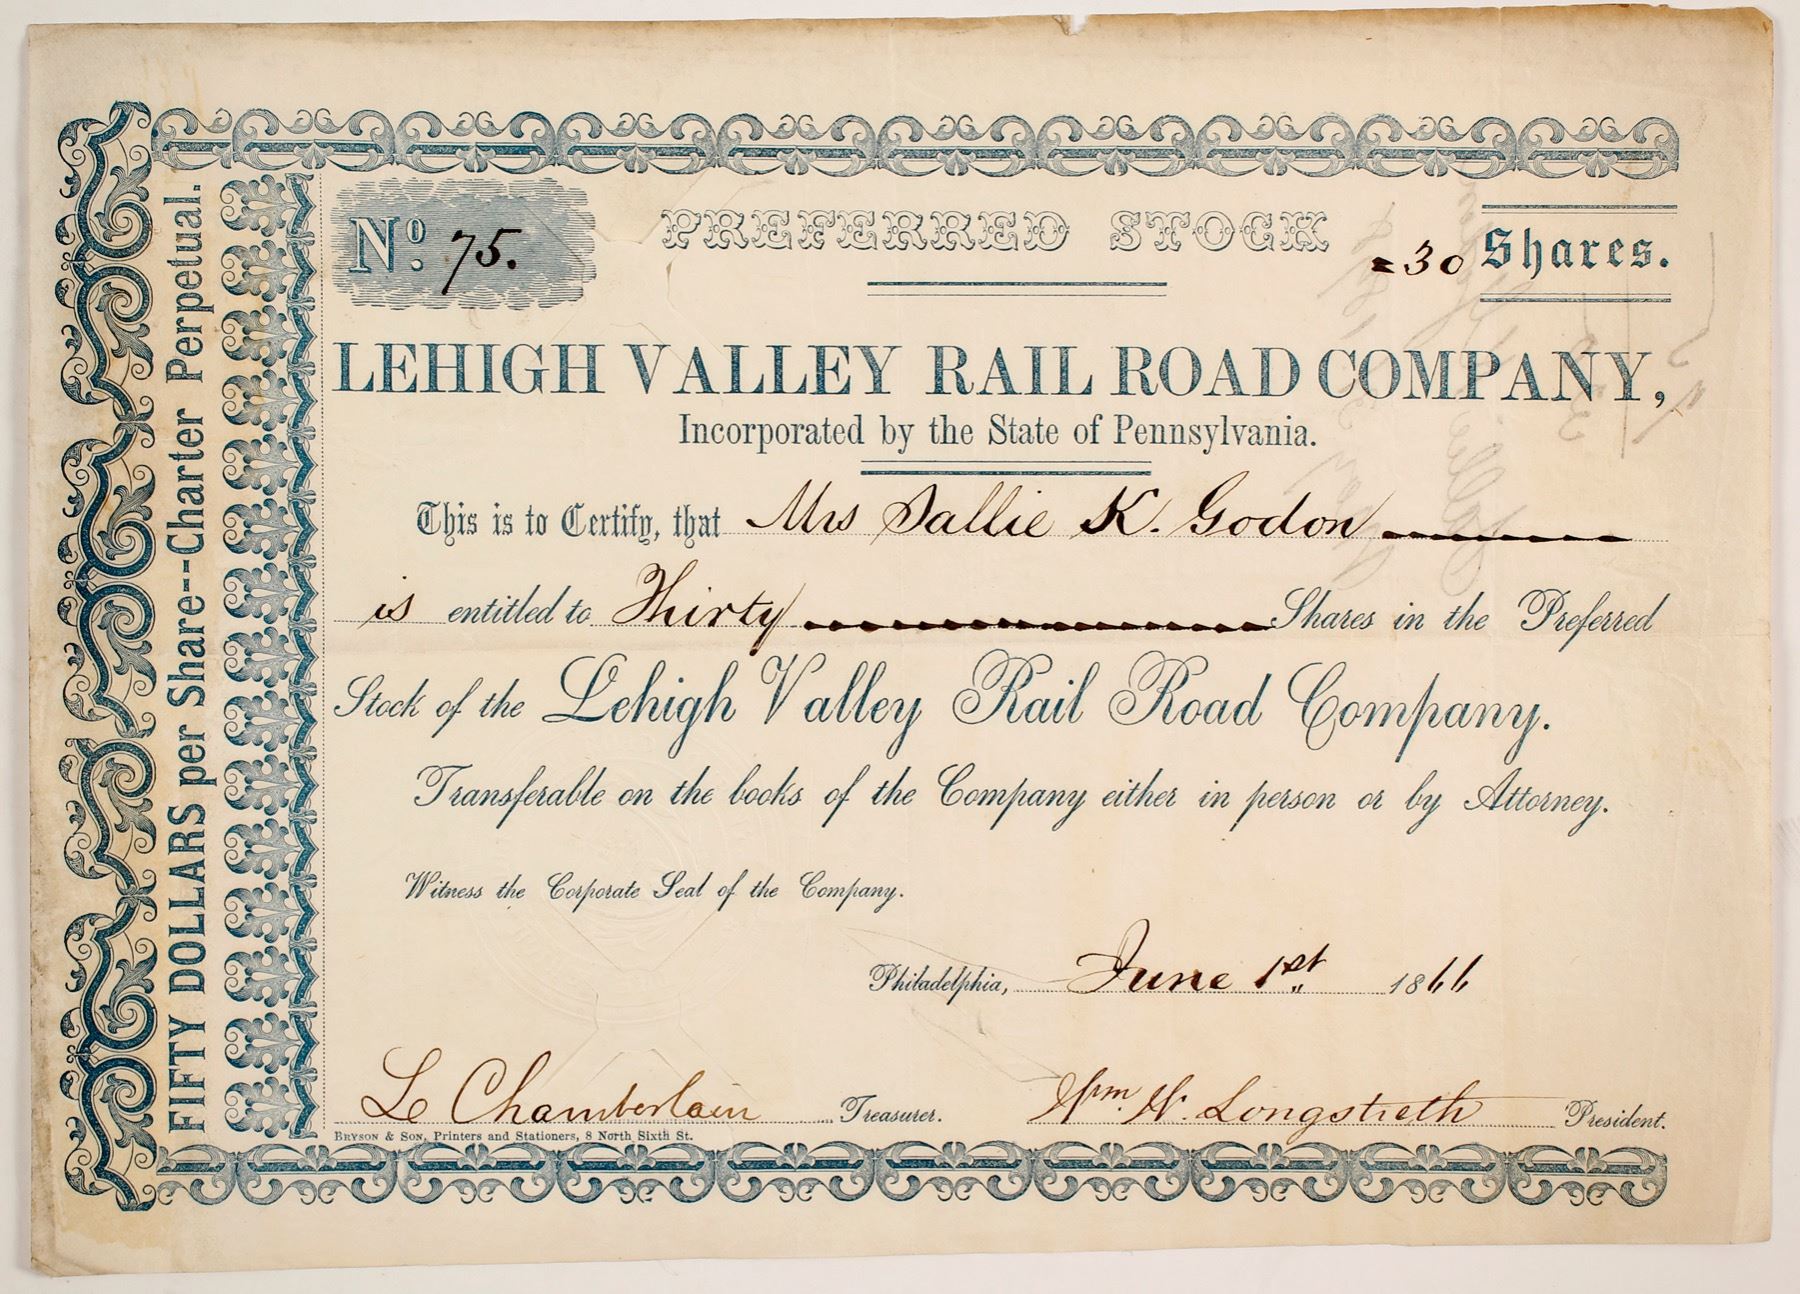 FIFTY DOLLARS per Share--Charter Perpetual.
No. 75.
PREFERRED STOCK
30 Shares.
LEHIGH VALLEY RAIL ROAD COMPANY,
Incorporated by the State of Pennsylvania.
This is to Certify, that Mrs Sallie K. Godon
is entitled to Thirty Shares in the Preferred
Stock of the Lehigh Valley Rail Road Company.
Transferable on the books of the Company either in person or by Attorney.
Witness the Corporate Seal of the Company.
Philadelphia, June 1st 1866
L Chamberlain Treasurer. Wm. W. Longstreth President.
BRYSON & SON, Printers and Stationers, 8 North Sixth St.